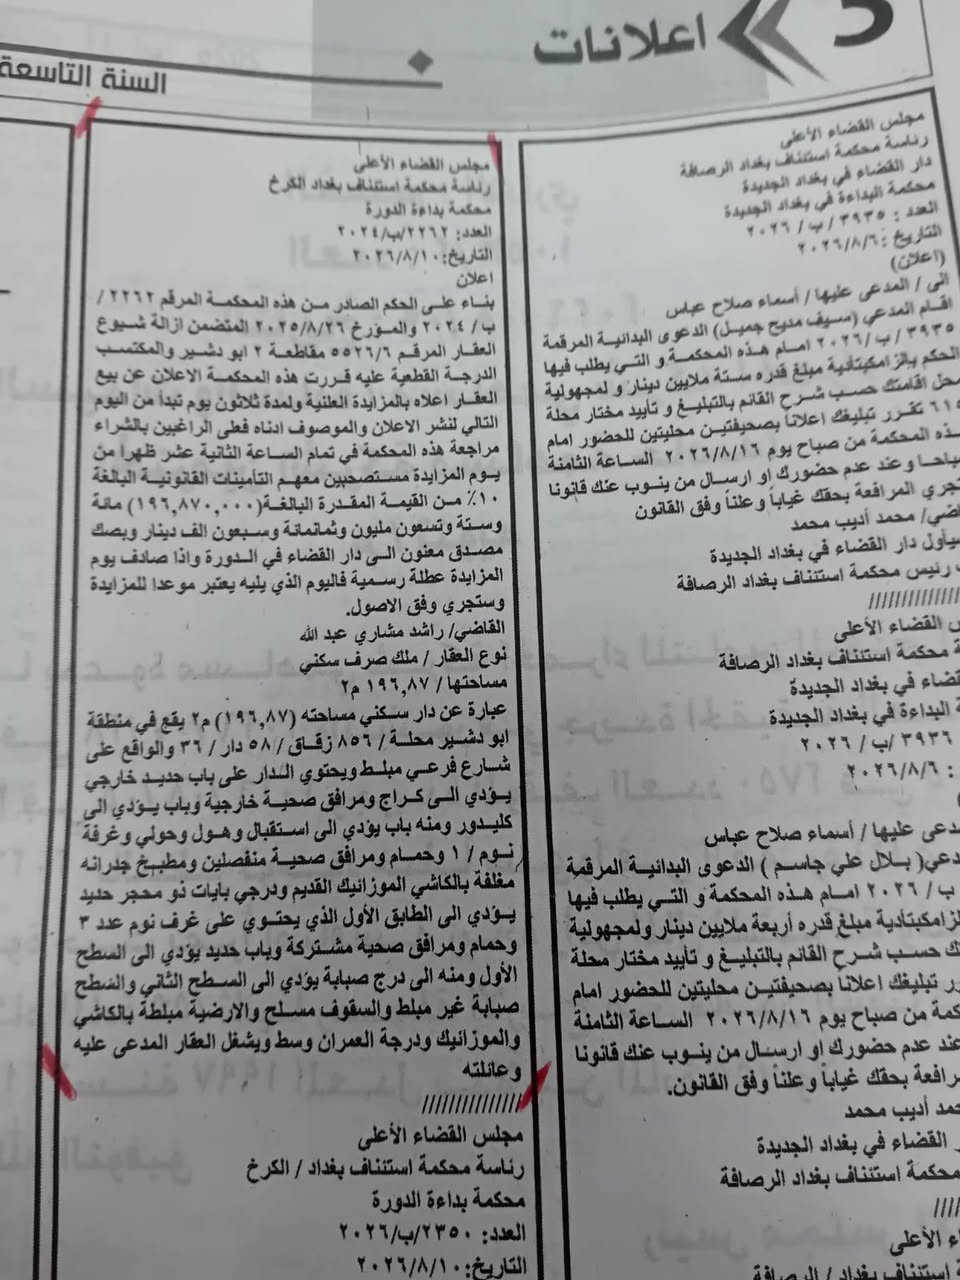 اعلانات
السنة التاسعة
مجلس القضاء الأعلى
رئاسة محكمة استئناف بغداد الرصافة
دار القضاء في بغداد الجديدة
محكمة البداءة في بغداد الجديدة
العدد : ٣٩٣٥ / ب / ٢٠٢٦
التاريخ : ٢٠٢٦/٨/٦
(اعلان)
الى / المدعى عليها / أسماء صلاح عباس
اقام المدعي (سيف مديح جميل) الدعوى البدائية المرقمة
٣٩٣٥ / ب/ ٢٠٢٦ امام هذه المحكمة و التي يطلب فيها
الحكم بالزامكبتأدية مبلغ قدره ستة ملايين دينار و لمجهولية
محل اقامتك حسب شرح القائم بالتبليغ و تأييد مختار محلة
٦١٥ تقرر تبليغك اعلاناً بصحيفتين محليتين للحضور امام
هذه المحكمة من صباح يوم ٢٠٢٦/٨/١٦ الساعة الثامنة
صباحا وعند عدم حضورك او ارسال من ينوب عنك قانونا
تجري المرافعة بحقك غياباً وعلناً وفق القانون
القاضي/ محمد أديب محمد
دار القضاء في بغداد الجديدة
رئيس محكمة استئناف بغداد الرصافة
//////////////
القضاء الأعلى
محكمة استئناف بغداد الرصافة
القضاء في بغداد الجديدة
البداءة في بغداد الجديدة
٣٩٣٦ /ب/ ٢٠٢٦
: ٢٠٢٦/٨/٦
المدعى عليها / أسماء صلاح عباس
المدعي( بلال علي جاسم ) الدعوى البدائية المرقمة
ب / ٢٠٢٦ امام هذه المحكمة و التي يطلب فيها
بالزامكبتأدية مبلغ قدره أربعة ملايين دينار ولمجهولية
حسب شرح القائم بالتبليغ و تأييد مختار محلة
تقرر تبليغك اعلاناً بصحيفتين محليتين للحضور امام
المحكمة من صباح يوم ٢٠٢٦/٨/١٦ الساعة الثامنة
وعند عدم حضورك او ارسال من ينوب عنك قانونا
المرافعة بحقك غياباً وعلناً وفق القانون.
محمد أديب محمد
القضاء في بغداد الجديدة
محكمة استئناف بغداد الرصافة
////
القضاء الأعلى
محكمة استئناف بغداد / الرصافة
مجلس القضاء الأعلى
رئاسة محكمة استئناف بغداد الكرخ
محكمة بداءة الدورة
العدد: ٢٢٦٢/ب/٢٠٢٤
التاريخ: ٢٠٢٦/٨/١٠
اعلان
بناء على الحكم الصادر من هذه المحكمة المرقم ٢٢٦٢ /
ب/ ٢٠٢٤ والمؤرخ ٢٠٢٥/٨/٢٦ المتضمن ازالة شيوع
العقار المرقم ٥٥٢٦/٦ مقاطعة ٢ ابو دشير والمكتسب
الدرجة القطعية عليه قررت هذه المحكمة الاعلان عن بيع
العقار اعلاه بالمزايدة العلنية ولمدة ثلاثون يوم تبدأ من اليوم
التالي لنشر الاعلان والموصوف ادناه فعلى الراغبين بالشراء
مراجعة هذه المحكمة في تمام الساعة الثانية عشر ظهرا من
يوم المزايدة مستصحبين معهم التأمينات القانونية البالغة
١٠٪ من القيمة المقدرة البالغة(١٩٦,٨٧٠,٠٠٠) مائة
وستة وتسعون مليون وثمانمائة وسبعون الف دينار وبصك
مصدق معنون الى دار القضاء في الدورة واذا صادف يوم
المزايدة عطلة رسمية فاليوم الذي يليه يعتبر موعدا للمزايدة
وستجري وفق الاصول.
القاضي/ راشد مشاري عبد الله
نوع العقار / ملك صرف سكني
مساحتها / ١٩٦,٨٧ م٢
عبارة عن دار سكني مساحته (١٩٦,٨٧) م٢ يقع في منطقة
ابو دشير محلة / ٨٥٦ زقاق / ٥٨ دار / ٣٦ والواقع على
شارع فرعي مبلط ويحتوي الدار على باب حديد خارجي
يؤدي الى كراج ومرافق صحية خارجية وباب يؤدي الى
كليدور ومنه باب يؤدي الى استقبال وهول وحولي وغرفة
نوم / ١ وحمام ومرافق صحية منفصلين ومطبخ جدرانه
مغلفة بالكاشي الموزائيك القديم ودرجي بايات ذو محجر حديد
يؤدي الى الطابق الأول الذي يحتوي على غرف نوم عدد ٣
وحمام ومرافق صحية مشتركة وباب حديد يؤدي الى السطح
الأول ومنه الى درج صبابة يؤدي الى السطح الثاني والسطح
صبابة غير مبلط والسقوف مسلح والارضية مبلطة بالكاشي
والموزائيك ودرجة العمران وسط ويشغل العقار المدعى عليه
وعائلته
///////////////
مجلس القضاء الأعلى
رئاسة محكمة استئناف بغداد / الكرخ
محكمة بداءة الدورة
العدد: ٢٣٥٠/ب/٢٠٢٦
التاريخ: ٢٠٢٦/٨/١٠